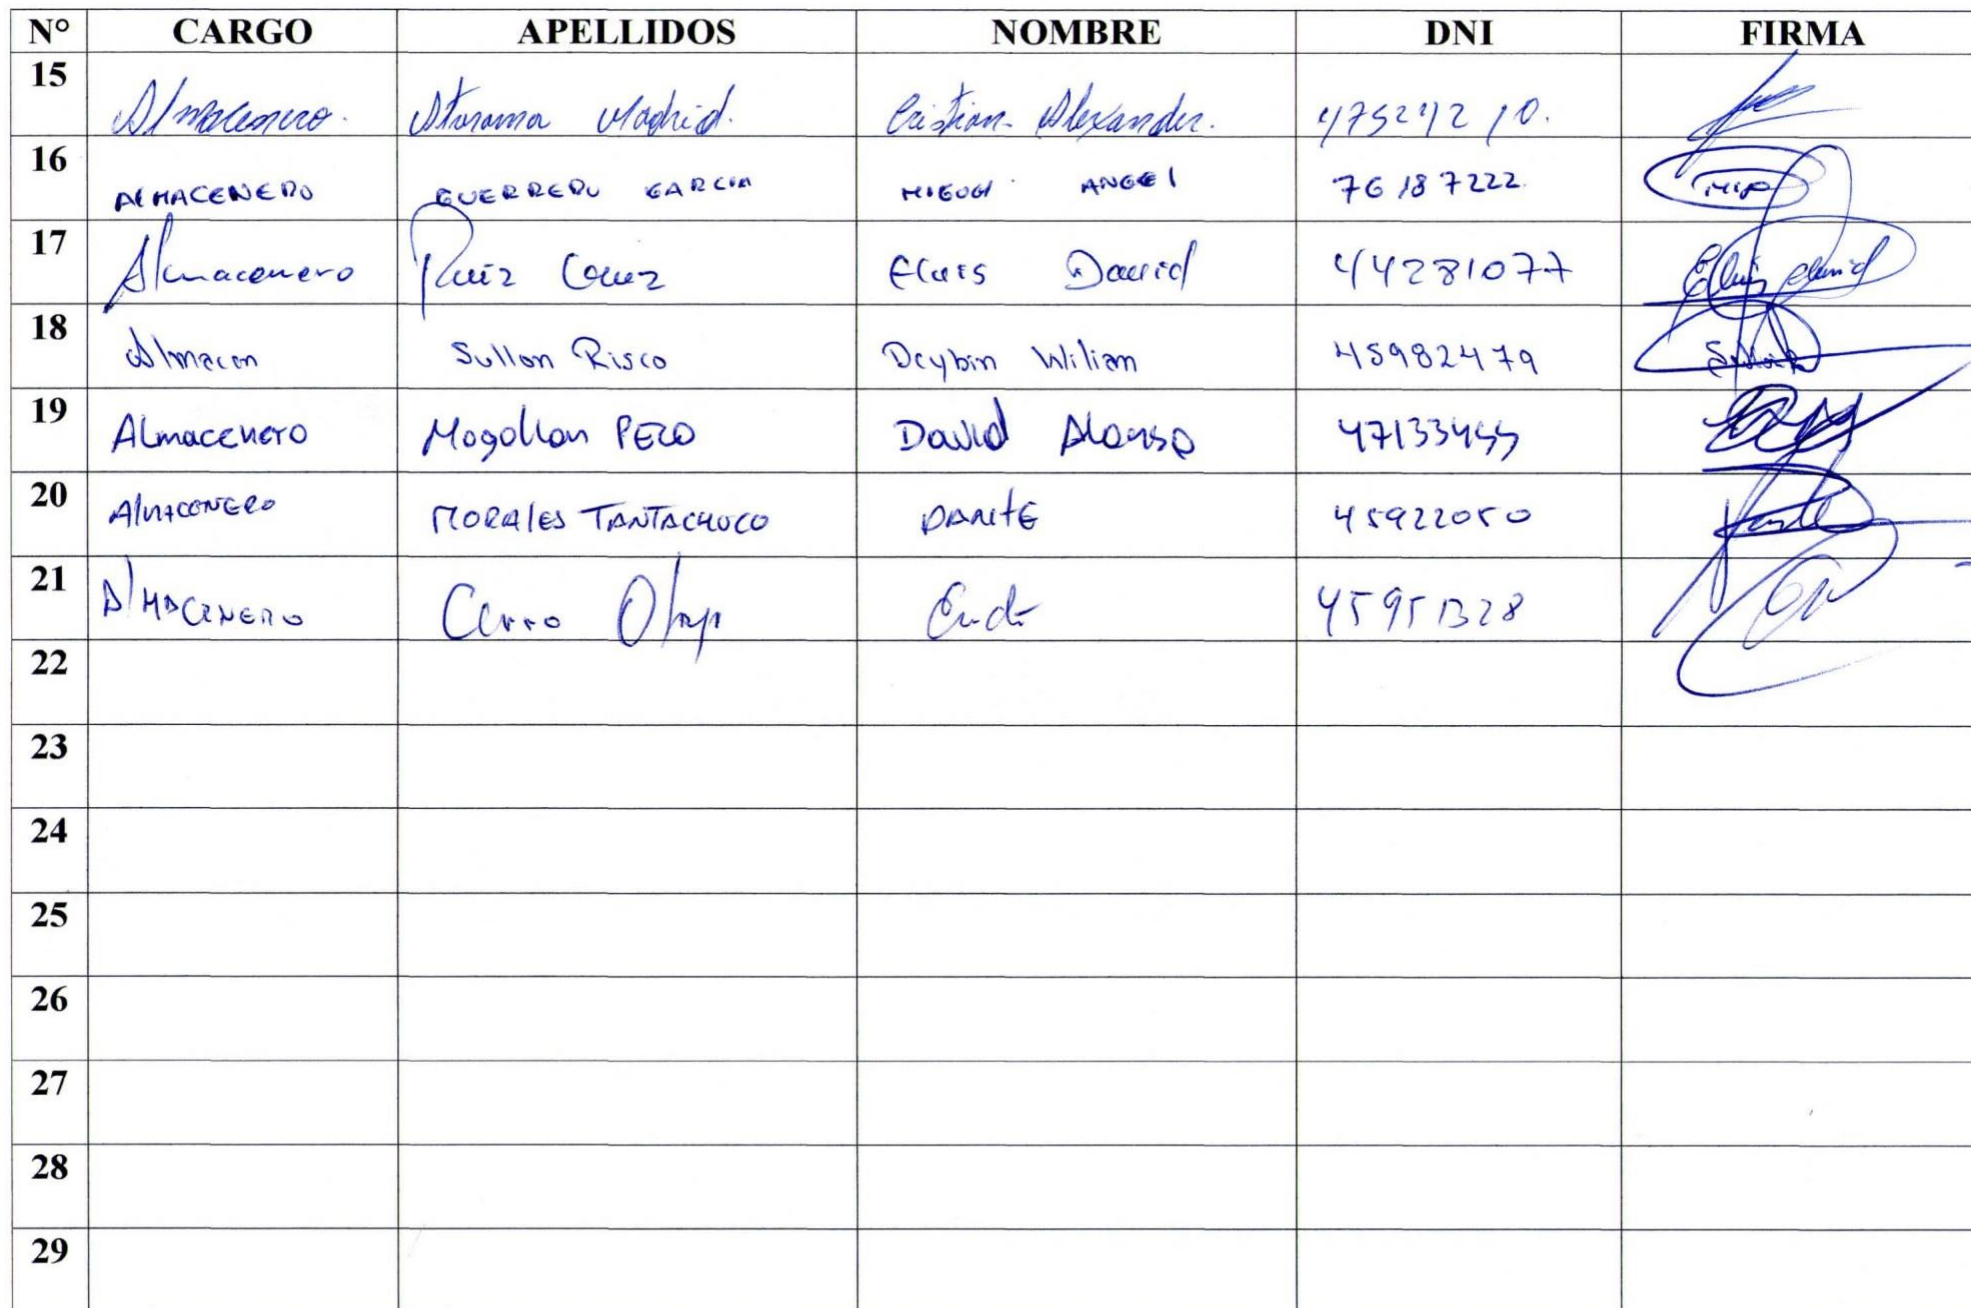 N° CARGO APELLIDOS NOMBRE DNI FIRMA
15 Almacenero. Madrid. Cristian Alexander. 47524210.
16 ALMACENERO GUERRERO GARCIA MIGUEL ANGEL 76187222
17 Almacenero Ruiz Cruz Eluis David 44281077 Eluis david
18 Almacen Sullon Risco Deybin Wilian 45982479
19 Almacenero Mogollon PEZO David Alonso 47133455
20 AlmACENERO MORAlES TANTACHUCO DANtE 45922050
21 AlMACENERO Cerro 45951328
22
23
24
25
26
27
28
29